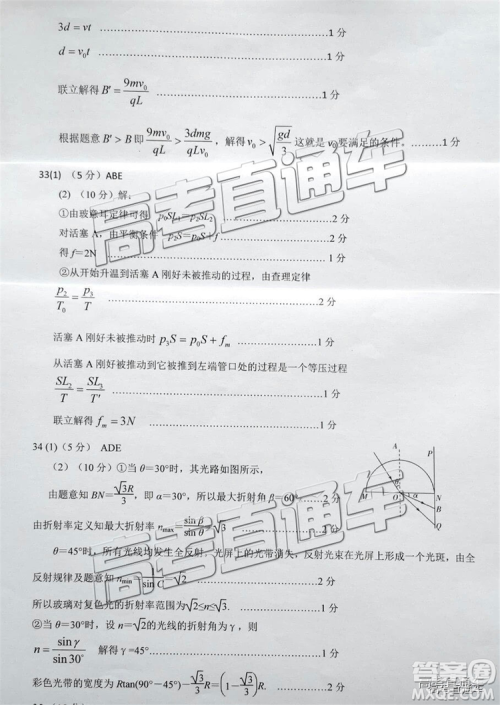 3d = vt ……………1 分
d = v₀t ……………1 分
联立解得 B′ = 9mv₀/qL ……………1 分
根据题意 B′ > B 即 9mv₀/qL > 3dmg/qLv₀，解得 v₀ > √(gd/3) 这就是 v₀ 要满足的条件。……………1 分
33(1) （5 分）ABE
(2) （10 分）解：
①由玻意耳定律可得 p₀SL₁ = p₂SL₂ ……………2 分
对活塞 A，由平衡条件 p₂S = p₀S + f ……………2 分
得 f=2N
②从开始升温到活塞 A 刚好被推动的过程，由查理定律
p₂/T₀ = p₃/T ……………2 分
活塞 A 刚好未被推动时 p₃S = p₀S + fₘ ……………1 分
从活塞 A 刚好被推动到它被推到左端管口处的过程是一个等压过程
SL₂/T = SL₃/T′ ……………1 分
联立解得 fₘ = 3N ……………1 分
34 (1)（5 分） ADE
（2）（10 分）①当 θ=30°时，其光路如图所示，
由题意知 BN=√3R/3，即 α=30°，所以最大折射角 β=60° ……………2 分
由折射率定义知最大折射率 n_max=sinβ/sinθ=√3 ……………1 分
θ=45°时，所有光线均发生全反射，光屏上的光带消失，反射光束在光屏上形成一个光斑，由全
反射规律及题意知 n_min=1/sin C=√2 ……………2 分
所以玻璃对复色光的折射率范围为 √2≤n≤√3. ……………1 分
②当 θ=30°时，设 n=√2 的光线的折射角为 γ，则
n = sinγ/sin30° 解得 γ =45° ……………1 分
彩色光带的宽度为 Rtan(90°－45°)－√3/3R=(1－√3/3)R ……………2 分
A
P
M
O
α
N
B
Q
高考直通车
高考直通车
答案圈
MXQE.COM